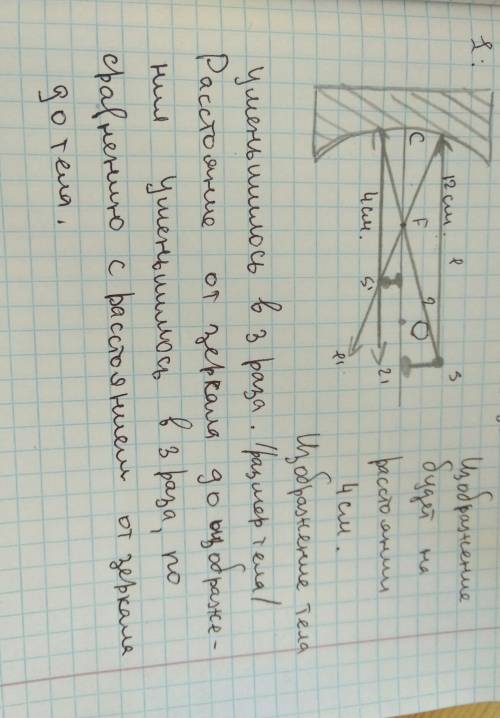 1:
12 см.
l
S
C
F
2
O
4 см.
S'
2'
l'
Изображение
будет на
расстоянии
4 см.
Изображение тела
уменьшилось в 3 раза. /размер тела/
Расстояние от зеркала до изображе-
ния уменьшилось в 3 раза, по
сравнению с расстоянием от зеркала
до тела.